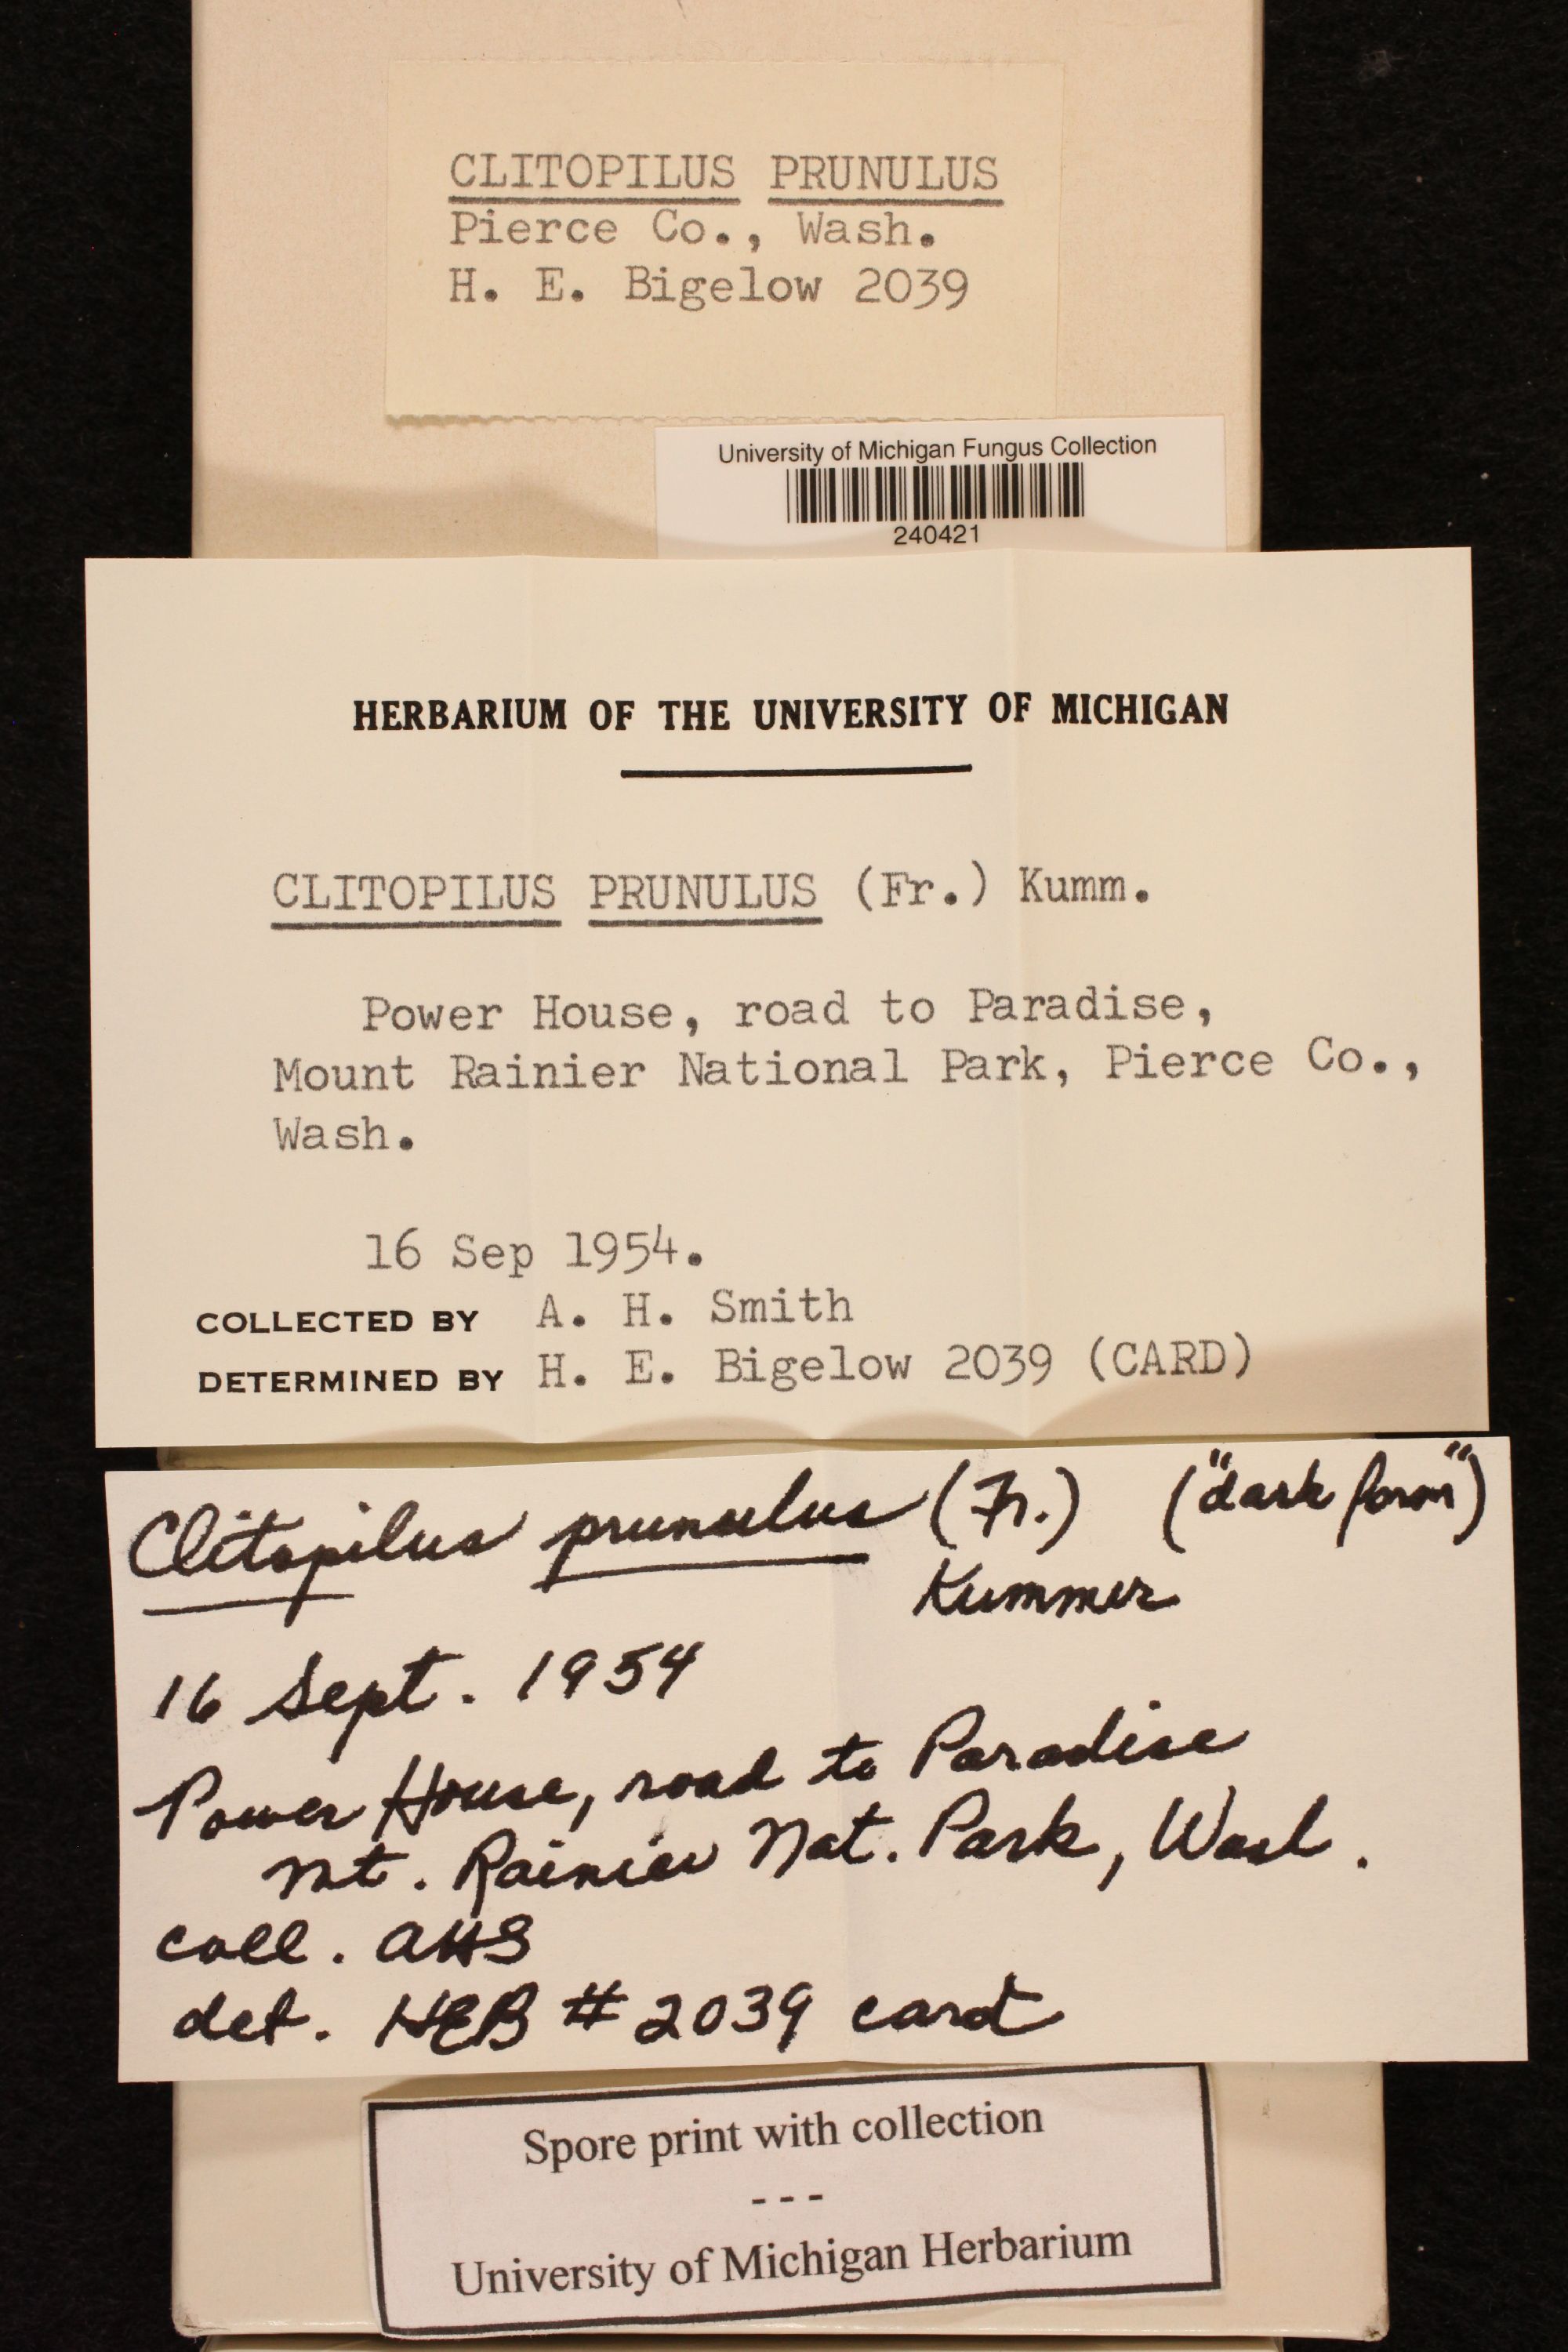 CLITOPILUS PRUNULUS
Pierce Co., Wash.
H. E. Bigelow 2039
University of Michigan Fungus Collection
240421
HERBARIUM OF THE UNIVERSITY OF MICHIGAN
CLITOPILUS PRUNULUS (Fr.) Kumm.
Power House, road to Paradise,
Mount Rainier National Park, Pierce Co.,
Wash.
16 Sep 1954.
COLLECTED BY A. H. Smith
DETERMINED BY H. E. Bigelow 2039 (CARD)
Clitopilus prunulus (Fr.) ("dark form")
Kummer
16 Sept. 1954
Power House, road to Paradise
Mt. Rainier Nat. Park, Wash.
coll. AHS
det. HEB # 2039 card
Spore print with collection
---
University of Michigan Herbarium